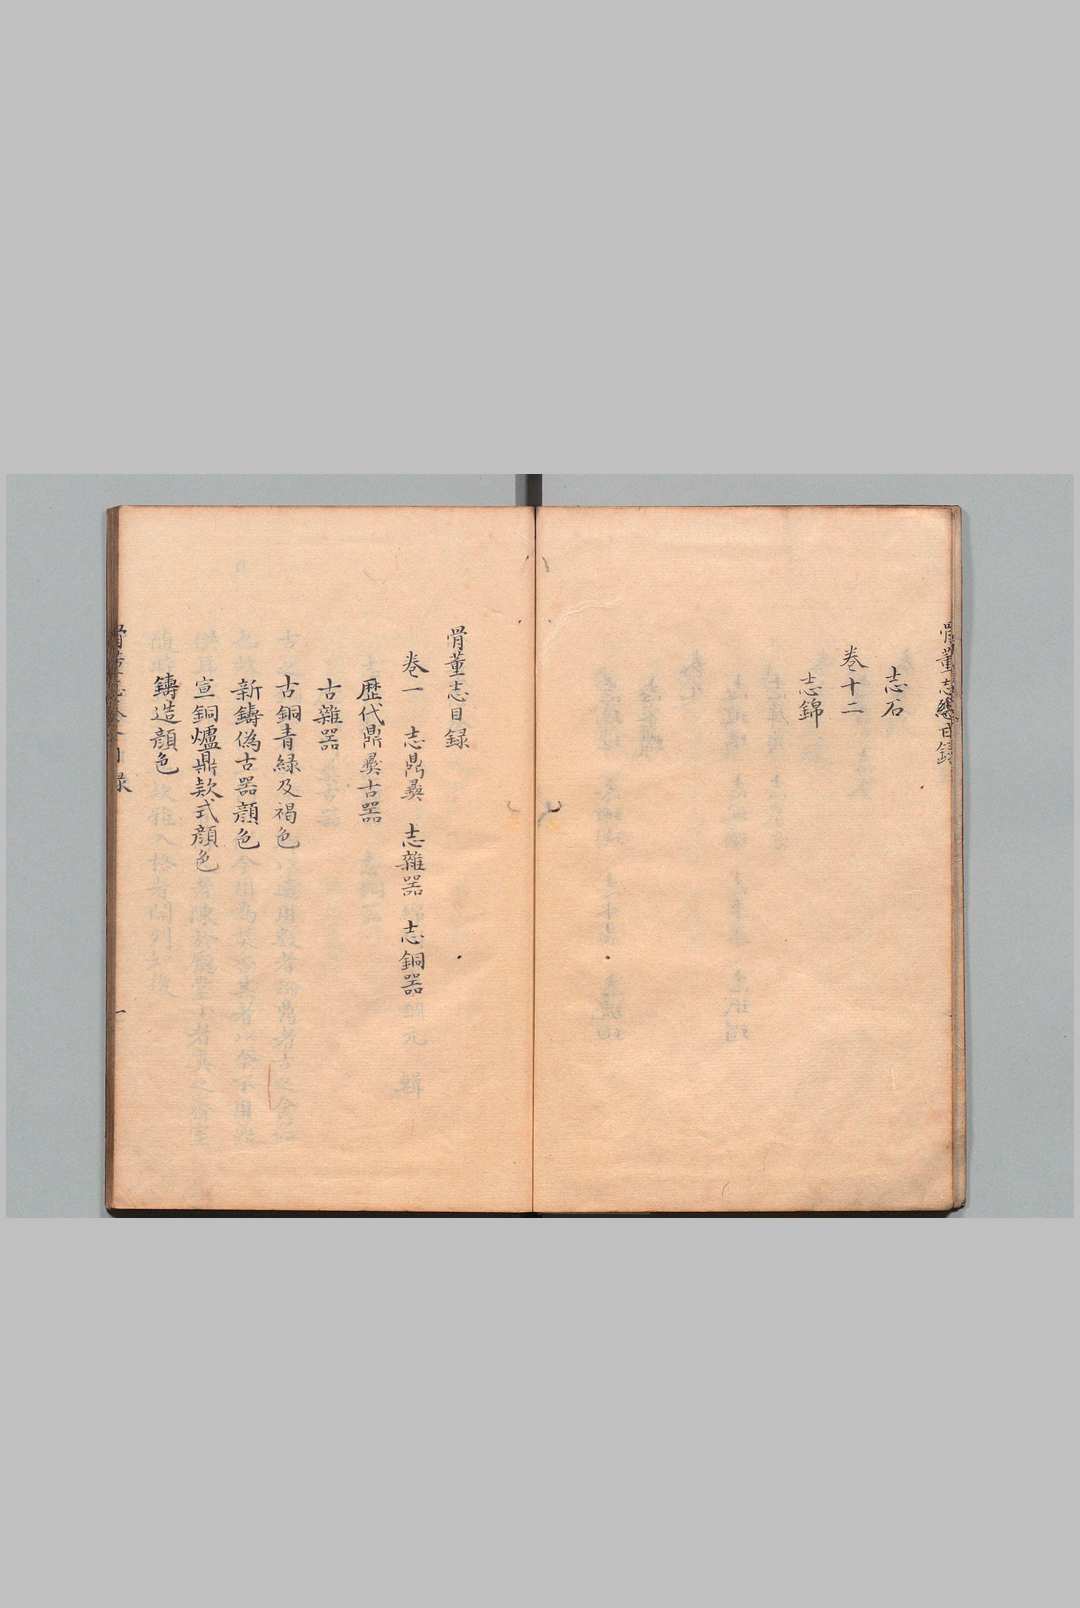 骨董志總目錄
志石
卷十二
志錦
骨董志目録
卷一　志鼎彝　志雜器　志銅器
歷代鼎彝古器
古雜器
古銅青緑及褐色
新鑄偽古器顔色
宣銅爐鼎款式顔色
鑄造顔色